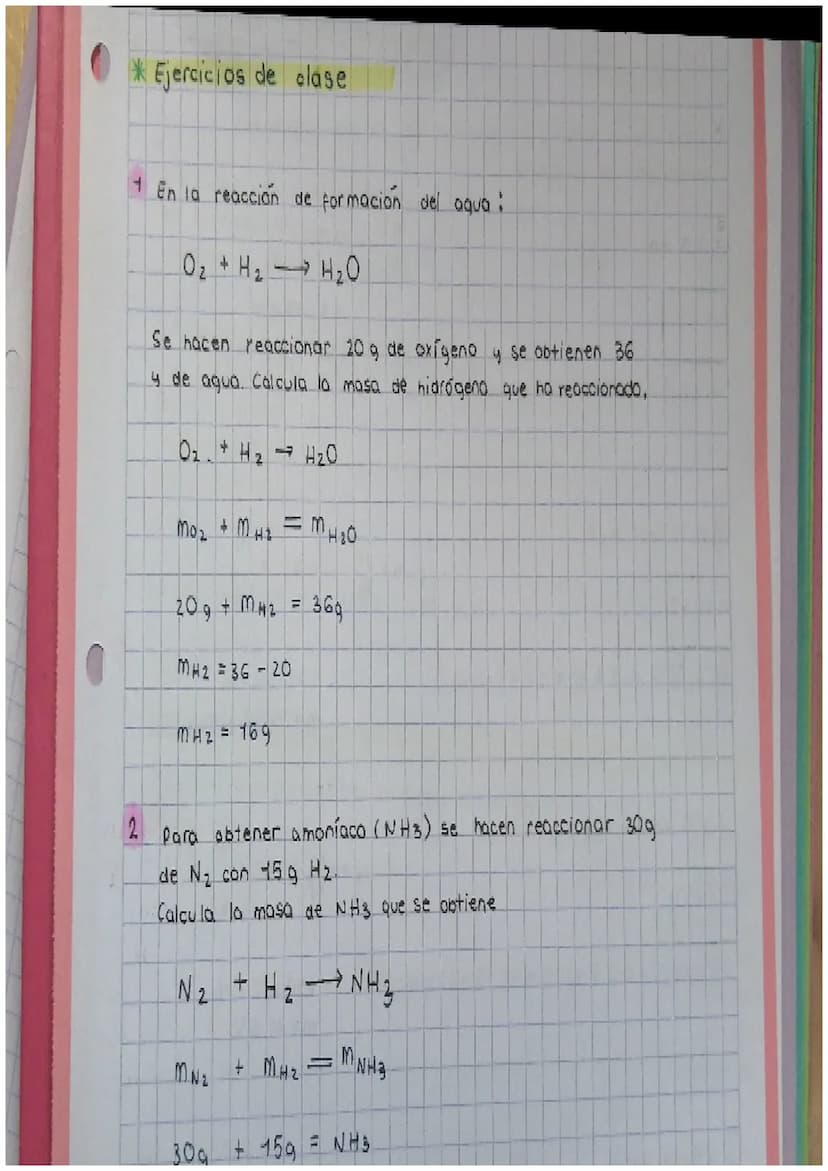 * Ejercicios de clase
1 En la reacción de formación del agua:
O₂ + H₂ → H₂O
Se hacen reaccionar 20 g de oxígeno y se obtienen 36
y de agua. Calcula la masa de hidrógeno que ha reaccionado,
O₂. + H₂ → H₂O
mO₂ + mH₂ = mH₂O
20g + mH₂ = 36g
mH₂ = 36 - 20
mH₂ = 16g
2 Para obtener amoníaco (NH₃) se hacen reaccionar 30g
de N₂ con 15g H₂.
Calcula la masa de NH₃ que se obtiene
N₂ + H₂ → NH₃
mN₂ + mH₂ = mNH₃
30g + 15g = NH₃